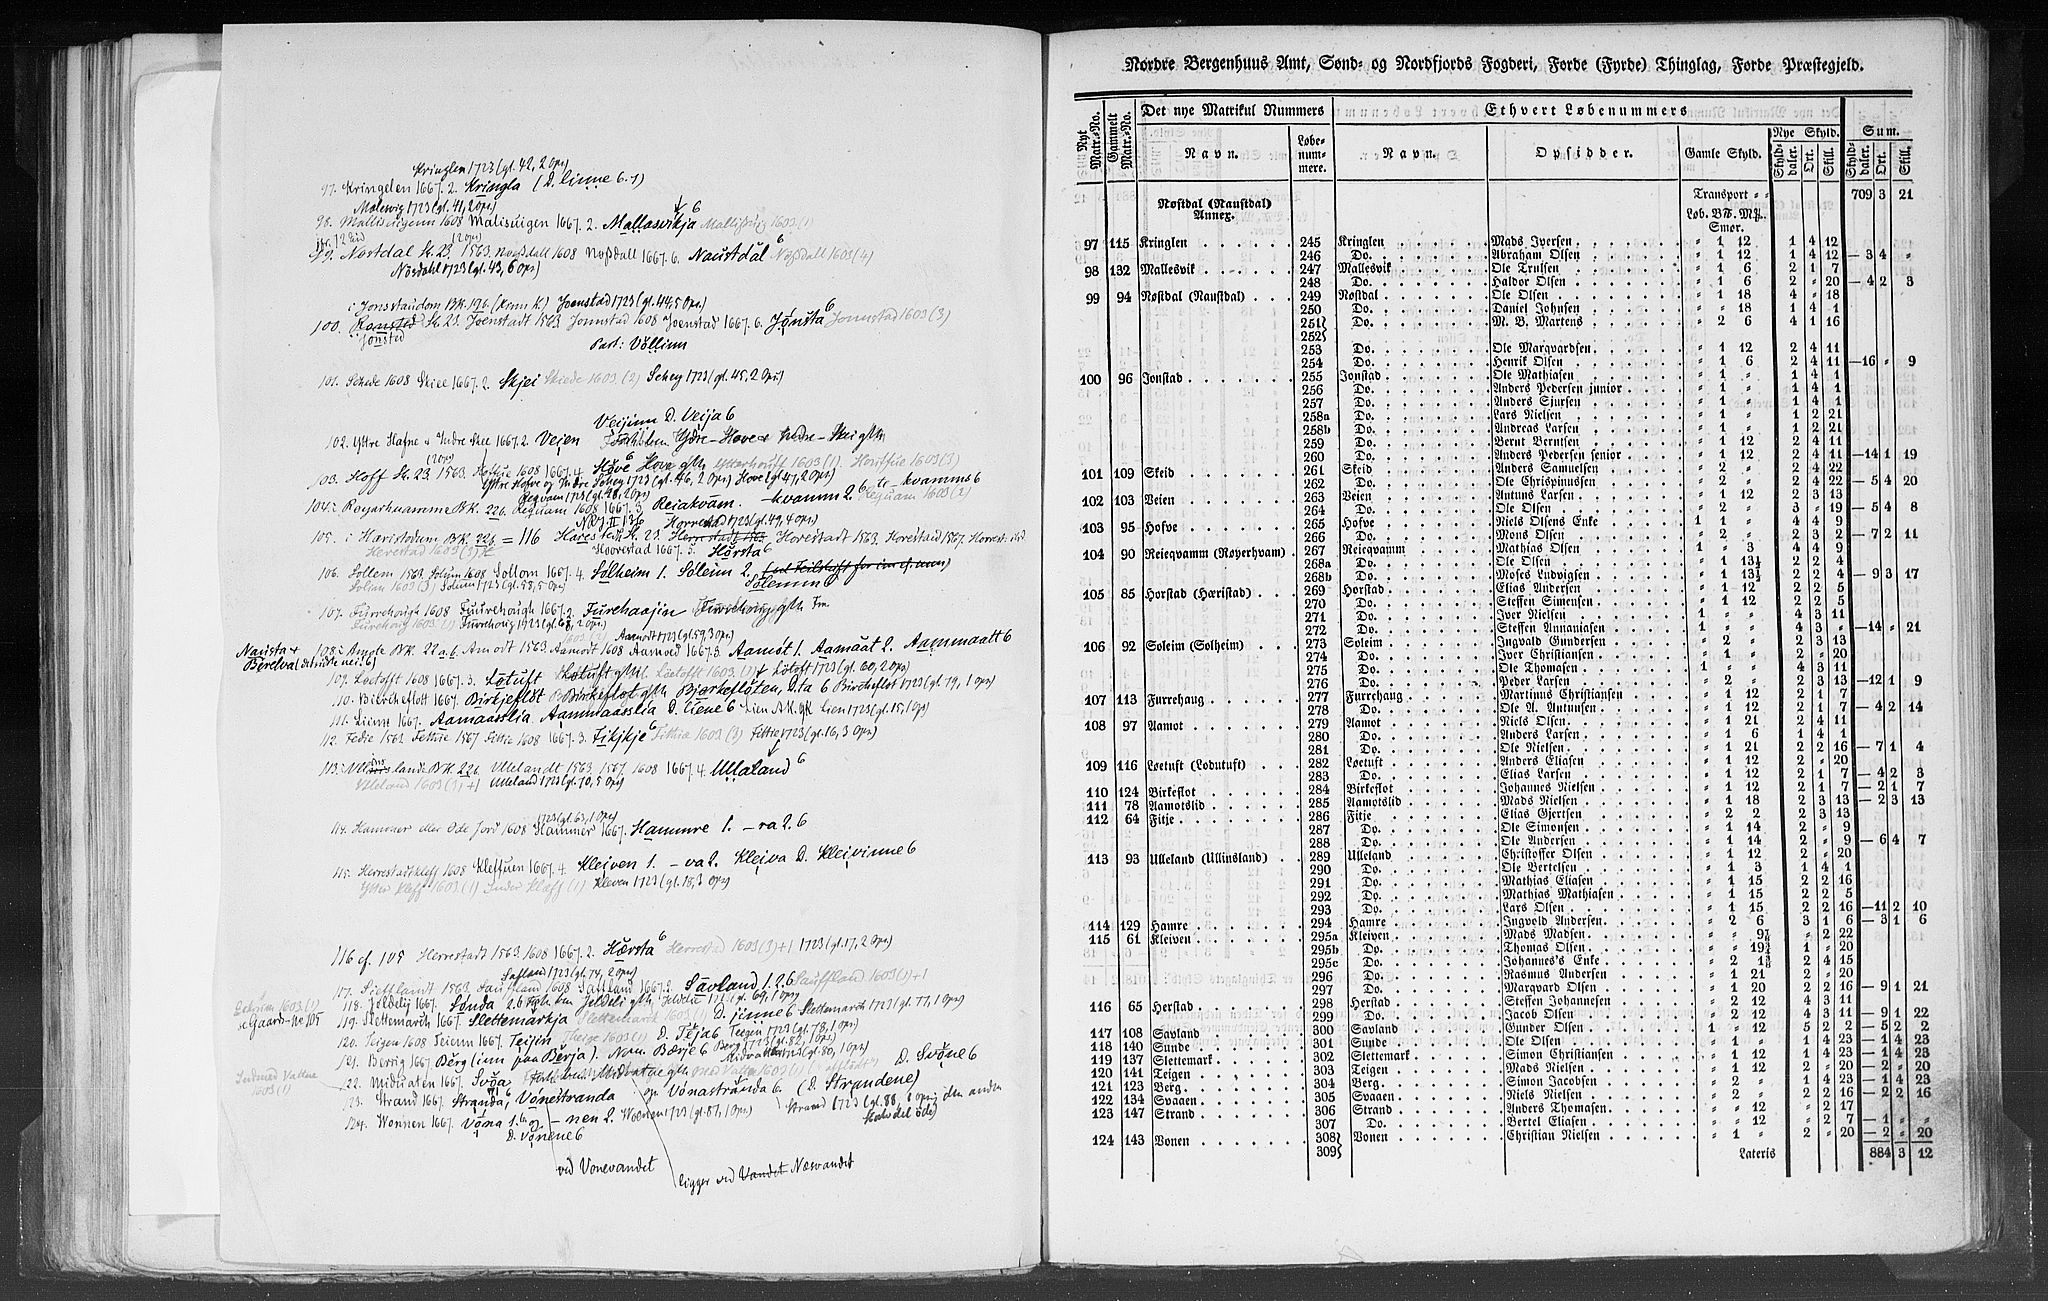 Kringlen 1723 (gl. 42, 2 Ops)
97. Kringelen 1667. 2. Kringla (D. linne 6.1)
Maleswig 1723 (gl. 41, 2 Ops)
98. Mallisuigenn 1608 Malisuigen 1667. 2. Mallasvikja 6 Mallissuig 1603 (1)
99. Nostdal St. 23. 1563. Nossdall 1608 Nossdall 1667. 6. Naustdal 6 Nossdall 1603 (4)
Nosdahl 1723 (gl. 43, 6 Ops)
i Jonsstaudom BK. 19b. (Kinn K.) Joenstad 1723 (gl. 44, 5 Ops)
100. Ronsted St. 23. Joenstadt 1563 Jonnstad 1608 Joenstad 1667. 6. Jonsta 6 Jonnstad 1603 (3)
Jonsted
Part: Vollinn
101. Schede 1608 Skiee 1667. 2 Skjei Skiede 1603 (2) Schey 1723 (gl. 45, 2 Ops)
Veijinn D. Veija 6
102. Yttre Hafue & Yndre Skee 1667. 2. Veien Ydre-Hove & Indre-Skei gtn
103. Hoff St. 23. 1563 Hoffue 1608 1667. 4. Hove 6 Hova gtn Ytterhouff 1603 (1). Houffue 1603 (3)
Yttre Hofve og Indre Schey 1723 (gl. 46, 2 Ops) Hove (gl. 47, 2 Ops)
Reqvam 1723 (gl. 48, 2 Ops)
104. i Royarhuamme BK. 22b. Requam 1608 1667. 3 Reiakvam. -kvamm 2. 6 te -kvamms 6 Requam 1603 (2)
NRJ. II 136 Horrestad 1723 (gl. 49, 4 Ops)
105. i Hæristodum BK. 22b. = 116 Harestedt St. 23. Horestadt 1563. Horestad 1567.
Herestad 1603 (3) Hoorestad 1667. 5. Horsta 6
106. Sollem 1563. Solum 1608 Sollom 1667. 4. Solheim 1. Soleim 2.
Solium 1603 (3) Solum 1723 (gl. 58, 5 Ops) Solemm 6
107. Furrehough 1608 Fuurehough 1667. 2. Furehaajin Furrehoug gtn
Furehoug 1603 (1) Furrehoug 1723 (gl. 68, 2 Ops)
Aamodt 1723 (gl. 59, 3 Ops)
Nausta + Beretva
108. i Amote BK. 22 a.b. Amodt 1563. Aamodt 1608 Aamoed 1667. 3. Aamot 1. Aamaat 2. Aammaatt 6
109. Loetofft 1608 1667. 3. Lotuft Lotuft gtn. Loetofft 1603. (1) Lotoft 1723 (gl. 60, 2 Ops)
110. Bierckeflott 1667. 2. Birkjeflot Birkeflot gtn Bjørkefloten, D. ta 6 Birckeflot 1723 (gl. 79, 1 Ops)
111. Lienn 1667. Aamaasslia. Aammaasslia D. liene 6 Lien A.K. gk Lien 1723 (gl. 15, 1 Ops)
112. Fedie 1563 Fethie 1567 Fittie 1608 1667. 3. Fikjkje 6 Fithia 1603 (3) Fittie 1723 (gl. 16, 3 Ops)
113. i Ullinslande BK. 22b. Ullelandt 1563. 1567. 1608 1667. 4. Ullaland 6
Ulleland 1603 (3) +1 Ulleland 1723 (gl. 70, 5 Ops)
1723 (gl. 63, 1 Ops)
114. Hammer eller Ode Jord 1608 Hammer 1667. Hammre 1. -ra 2. 6
115. Herrestadtkleff 1608 Kleffuen 1667. 4. Kleiven 1. -va 2. Kleiva D. Kleivinne 6
Ytter Kleff 1603 (1) Inder Klæff (1) Kleven 1723 (gl. 18, 3 Ops)
116 cf. 105 Herrestadt 1563. 1608 1667. 2. Hærsta 6 Herrestad 1603 (3) +1 1723 (gl. 17, 2 Ops)
Safland 1723 (gl. 74, 2 Ops)
117. Siefflandt 1563. Saufland 1608 Saffland 1667. 2. Savland 1. 2. 6 Saufland 1603 (1) +1
118. Joldelij 1667. Sonda 2. 6 Jeldeli gtn Jeldelie 1723 (gl. 69, 1 Ops)
se Gaard-No 105
119. Slettemarch 1667. Slettemarkja Slettemarck 1603 (1) D. jinne 6 Slettemarch 1723 (gl. 77, 1 Ops)
120. Teigen 1608 Teienn 1667. Teijin Theige 1603 (1) D. Teja 6 Teigen 1723 (gl. 78, 1 Ops)
121. Berrig 1667 Berg (inn paa Berja). Nom. Bærje 6 Berg 1723 (gl. 82, 1 Ops)
Midvatten 1723 (gl. 80, 1 Ops)
Indmed Vattne 1603 (1)
122. Miduaten 1667. Svoa Midvatne gtn D. Svone 6
123. Strand 1667. Stranda 6, Vonestranda og Vonastranda 6. (D. Strandene)
Strand 1723 (gl. 88, 1 Ops; den anden halvdel øde)
124. Wonnen 1667. Vona 1. 6 og -nen 2. Woenen 1723 (gl. 87, 1 Ops)
D. Vonene 6
ved Vonevandet
ligger ved Vandet Nesvandet
Nordre Bergenhuus Amt, Sønd- og Nordfjords Fogderi, Førde (Fyrde) Thinglag, Førde Præstegjeld.
Nyt Matr.-No. Gammelt Matr.-No. Det nye Matrikul Nummers Ethvert Løbenummers
Navn. Løbe-nummere. Navn. Opsidder. Gamle Skyld. Nye Skyld. Sum.
Skylddaler. Ort. Skill. Skylddaler. Ort. Skill.
Transport " " 709 3 21
Nøstdal (Naustdal) Annex. Løb. B℔. Mℊ. Smør.
97 115 Kringlen 245 Kringlen Mads Iversen " 1 12 1 4 12
246 Do. Abraham Olsen " 1 12 1 4 12 — 3 4 "
98 132 Mallesvik 247 Mallesvik Ole Trulsen " 1 6 2 1 7
248 Do. Haldor Olsen " 1 6 2 " 20 — 4 2 3
99 94 Nøstdal (Naustdal) 249 Nøstdal Ole Olsen " 1 18 4 " 18
250 Do. Daniel Johnsen " " 18 1 4 1
251 Do. M. B. Martens " 2 6 4 1 16
252
253 Do. Ole Marqvardsen " 1 12 2 4 11
254 Do. Henrik Olsen " 1 6 2 4 11 — 16 " 9
100 96 Jonstad 255 Jonstad Ole Mathiasen " 1 " 1 4 1
256 Do. Anders Pedersen junior " 1 " 1 4 1
257 Do. Anders Sjursen " 1 " 1 4 1
258a Do. Lars Nielsen " 1 " 1 2 21
258b Do. Andreas Larsen " 1 " 1 2 21
259 Do. Bernt Berntsen " 1 12 2 4 11
260 Do. Anders Pedersen senior " 1 12 2 4 11 — 14 1 19
101 109 Skeid 261 Skeid Anders Samuelsen " 2 " 2 4 22
262 Do. Ole Chrispinussen " 2 " 2 4 22 — 5 4 20
102 103 Veien 263 Veien Antuns Larsen " 1 12 2 3 13
264 Do. Ole Olsen " 2 " 3 " 19 — 5 4 8
103 95 Hofve 265 Hofve Niels Olsens Enke 1 1 " 4 4 9
266 Do. Mons Olsen " 2 " 2 3 2 — 7 2 11
104 90 Reieqvamm (Røyerhvam) 267 Reieqvamm Mathias Olsen 1 " 3 4 4 9
268a Do. Ole Olsen " 1 13½ 2 2 4
268b Do. Moses Ludvigsen " 1 13½ 2 2 4 — 9 3 17
105 85 Horstad (Hæristad) 269 Horstad Elias Andersen " 1 12 2 2 5
270 Do. Steffen Simensen " 1 12 2 2 5
271 Do. Iver Nielsen 1 " " 4 3 11
272 Do. Steffen Annaniasen 1 " " 4 3 " — 14 " 21
106 92 Soleim (Solheim) 273 Soleim Ingvald Gundersen " 2 " 2 3 13
274 Do. Iver Christiansen " 1 " 2 " 20
275 Do. Ole Thomasen 1 " " 4 3 11
276 Do. Peder Larsen " 2 " 2 3 13 — 12 1 9
107 113 Furrehaug 277 Furrehaug Martinus Christiansen " 1 12 2 1 7
278 Do. Ole A. Antunsen " 1 12 2 1 7 — 4 2 14
108 97 Aamot 279 Aamot Niels Olsen " 1 21 2 4 11
280 Do. Anders Larsen " 1 6 1 4 1
281 Do. Ole Nielsen " 1 21 2 2 16 — 7 1 4
109 116 Løetuft (Lodutuft) 282 Løetuft Anders Eliasen " 1 12 2 " 20
283 Do. Elias Larsen " 1 12 2 1 7 — 4 2 3
110 124 Birkeflot 284 Birkeflot Johannes Nielsen " 1 12 2 1 7 — 2 1 7
111 78 Aamotslid 285 Aamotslid Mads Nielsen " 1 18 2 3 13 — 2 3 13
112 64 Fitje 286 Fitje Elias Gjertsen " 2 2 2 3 13
287 Do. Ole Simonsen " 1 14 2 " 9
288 Do. Ole Andersen " 1 14 2 " 9 — 6 4 7
113 93 Ulleland (Ullinsland) 289 Ulleland Christoffer Olsen " 1 12 2 " 20
290 Do. Ole Bertelsen " 1 3 1 4 1
291 Do. Mathias Eliasen " 1 15 2 2 16
292 Do. Mathias Mathiasen " 1 15 2 2 5
293 Do. Lars Olsen " 1 15 2 2 16 — 11 2 10
114 129 Hamre 294 Hamre Ingvold Andersen " 2 6 3 1 6 — 3 1 6
115 61 Kleiven 295a Kleiven Mads Madsen " " 9⅞ " 2 22
295b Do. Thomas Olsen " " 19¾ 1 " 20
295c Do. Johannes's Enke " 2 1⅜ 2 4 15
296 Do. Rasmus Andersen " 1 21 2 " 20
297 Do. Marqvard Olsen " 1 20 2 2 16 — 9 1 21
116 65 Herstad 298 Herstad Steffen Johannesen " 2 12 4 3 11
299 Do. Jacob Olsen " 2 12 4 3 11 — 9 1 22
117 108 Savland 300 Savland Gunder Olsen 1 " 12 5 2 2 — 5 2 2
118 140 Sunde 301 Sunde Ole Olsen " 1 " 1 4 23 — 1 4 23
119 137 Slettemark 302 Slettemark Simon Christiansen " 1 12 1 4 23 — 1 4 23
120 141 Teigen 303 Teigen Mads Nielsen " 1 12 2 " 20 — 2 " 20
121 123 Berg 304 Berg Simon Jacobsen " 2 " 1 4 23 — 1 4 23
122 134 Svaaen 305 Svaaen Niels Nielsen " 2 " 2 2 16 — 2 2 16
123 147 Strand 306 Strand Anders Thomasen " " 12 " 2 17
307 Do. Bertel Eliasen " " 12 " 2 7 — 1 " "
124 143 Vonen 308 Vonen Christian Nielsen " 1 " 2 " 20 — 2 " 20
309 Lateris 884 3 12